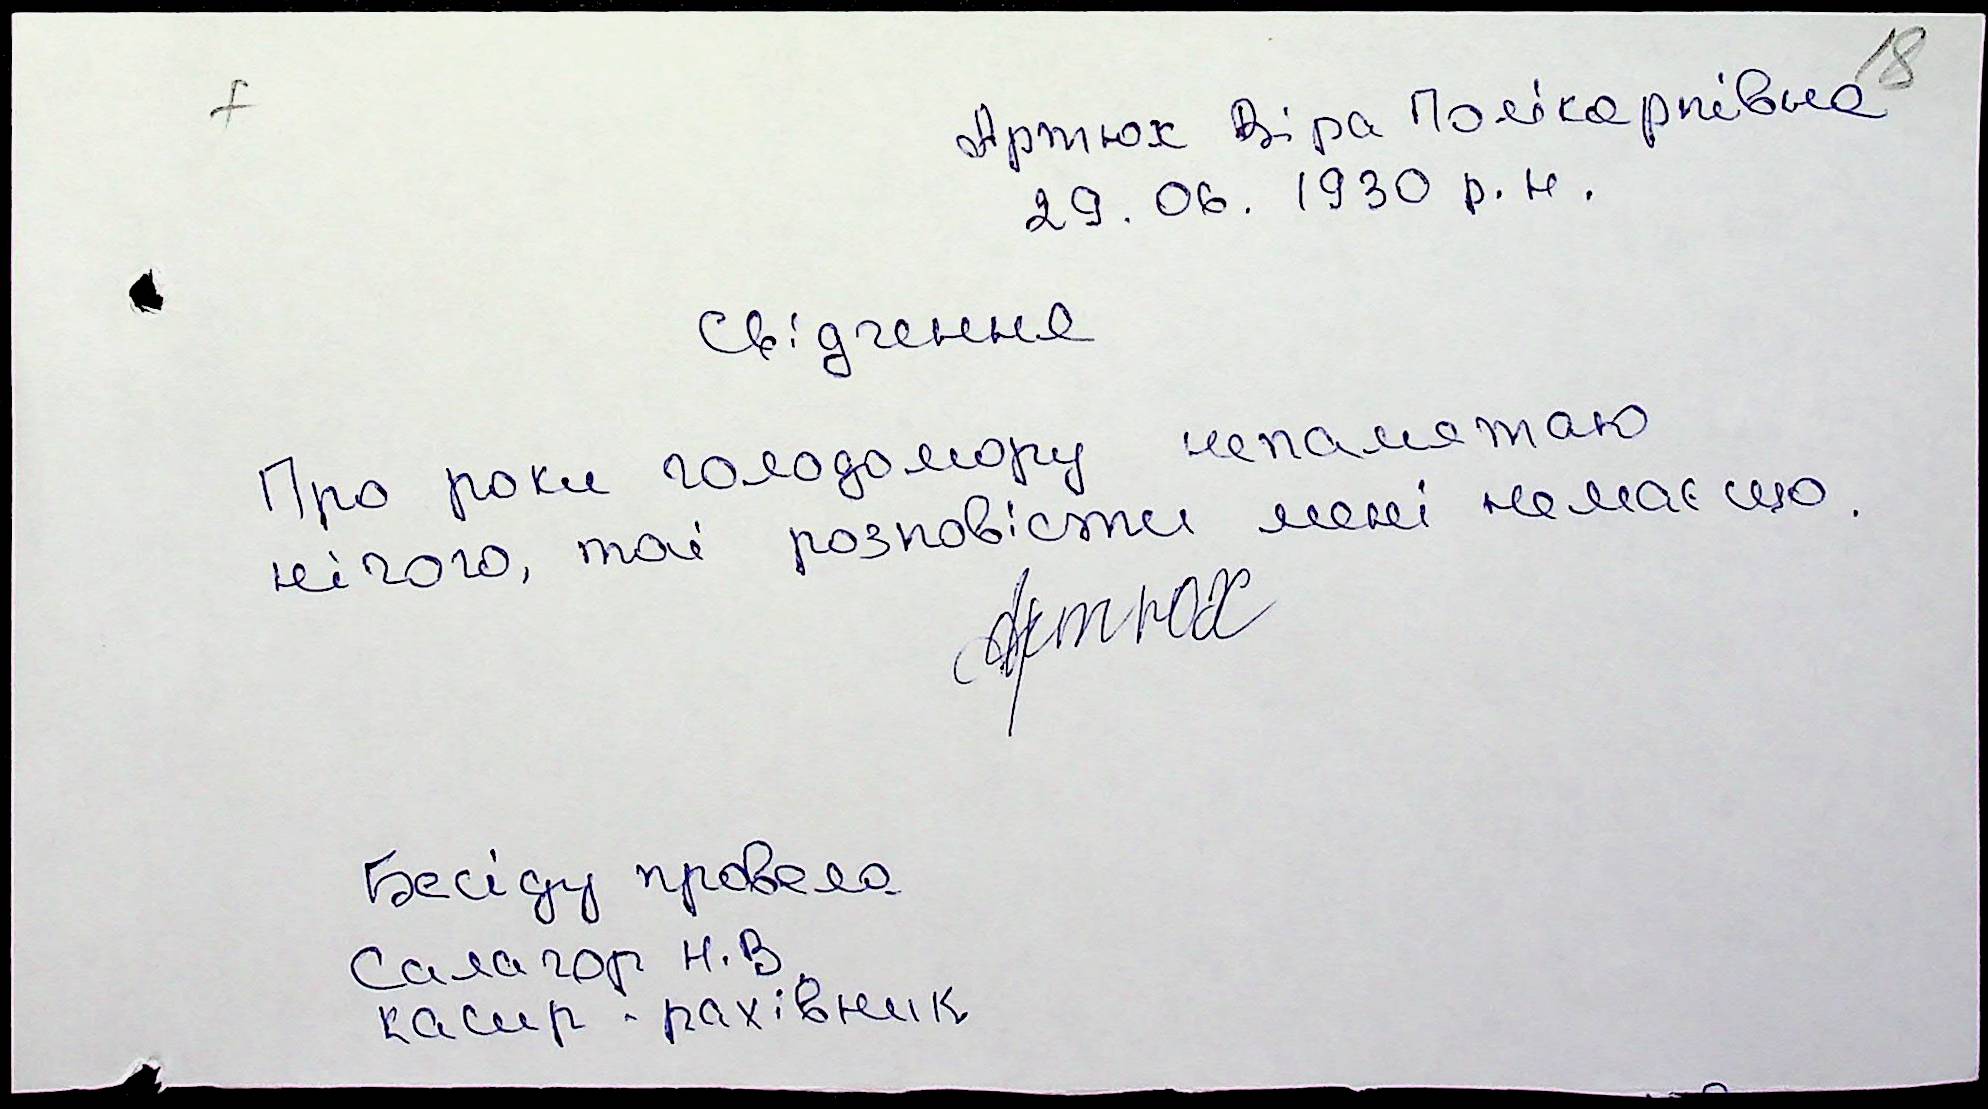 18
Артюх Віра Полікарпівна
29. 06. 1930 р. н.
Свідчення
Про роки голодомору непамятаю
нічого, таі розповісти мені немає що.
Артюх
Бесіду провела
Салагор Н.В.
касир - рахівник